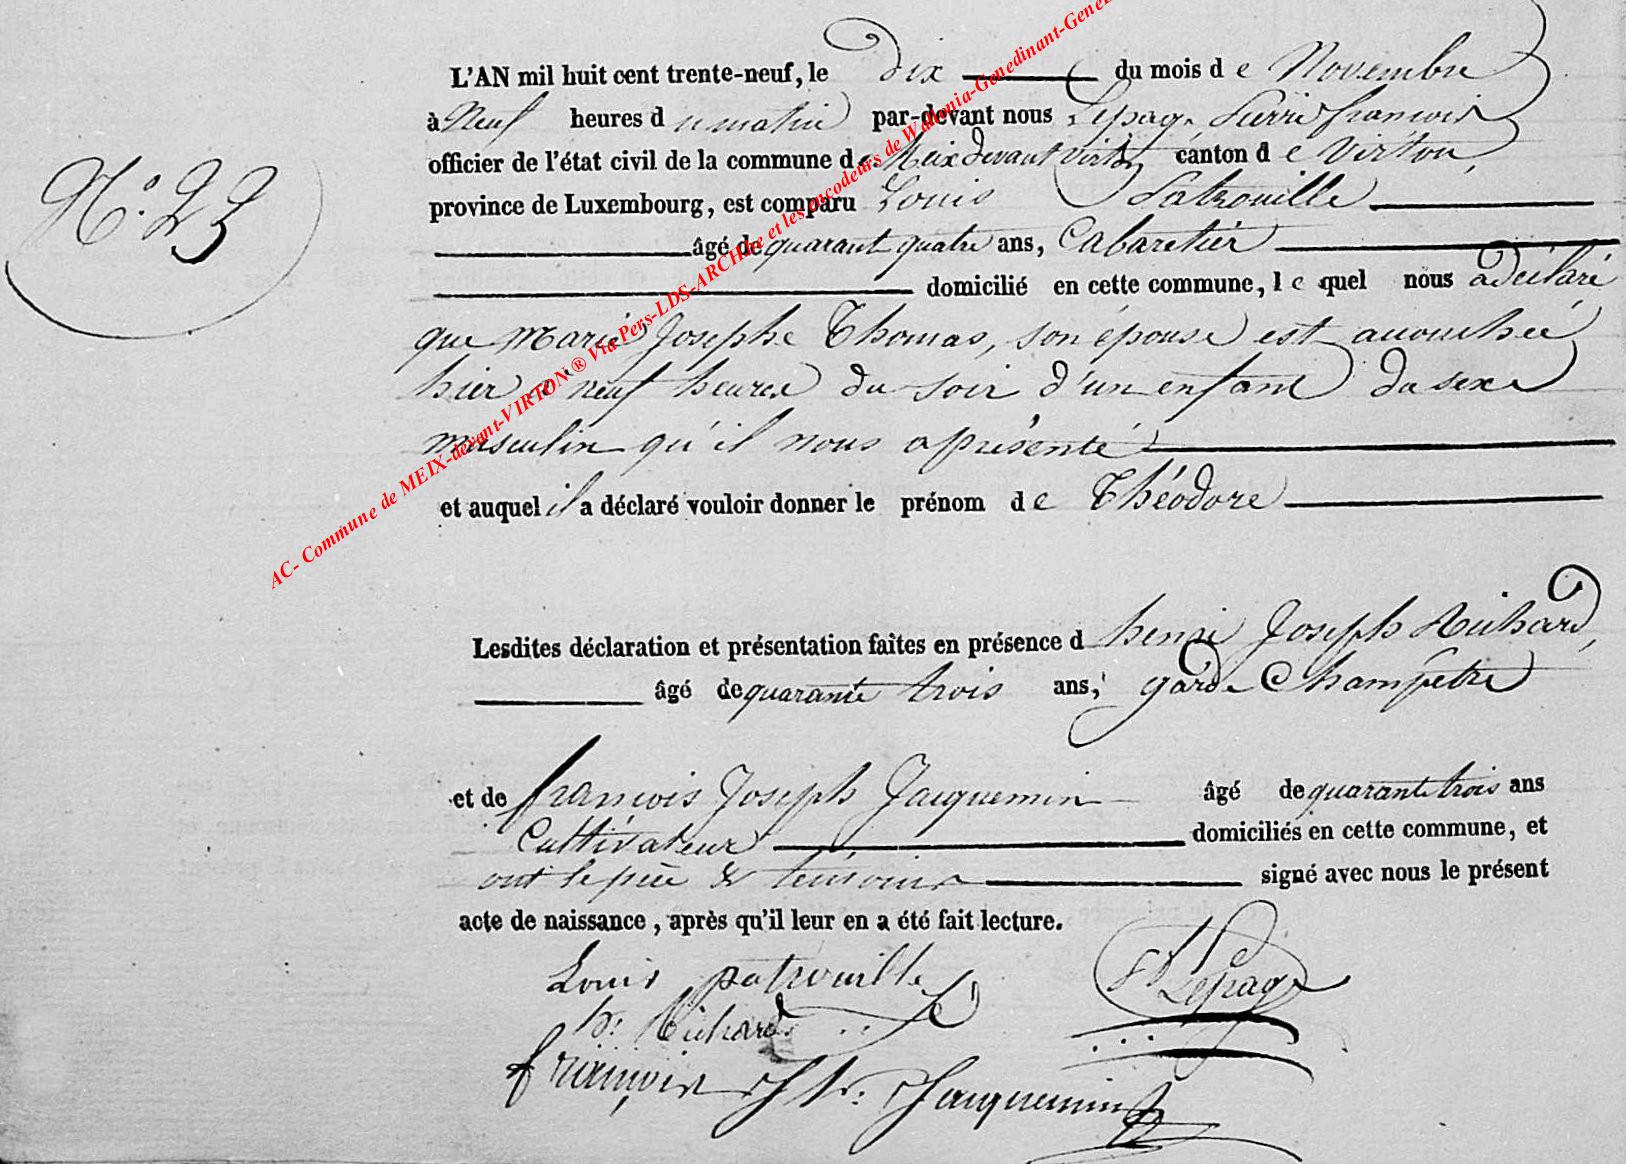 L'AN mil huit cent trente-neuf, le dix du mois de Novembre
à Neuf heures du matin par-devant nous Lepage Pierre françois
officier de l'état civil de la commune de Meix devant virton canton de Virton,
province de Luxembourg, est comparu Louis Patrouille
âgé de quarant quatre ans, Cabaretier
domicilié en cette commune, lequel nous a déclaré
que Marie Josephe Thomas, son épouse est accouchée
hier à neuf heures du soir d'un enfant du sexe
masculin qu'il nous a présenté
et auquel il a déclaré vouloir donner le prénom de Théodore
N.° 23
AC- Commune de MEIX-devant-VIRTON® Via Pers-LDS-ARCHive et les encodeurs de Wallonia-Genedinant-Gene
Lesdites déclaration et présentation faites en présence d henri Joseph Richard,
âgé de quarante trois ans, garde Champêtre
et de françois Joseph Jacquemin âgé de quarante trois ans
Cultivateur domiciliés en cette commune, et
ont le père & temoins signé avec nous le présent
acte de naissance, après qu'il leur en a été fait lecture.
Louis patrouille
Lepage
h: Richard
françois Jh: Jacquemin